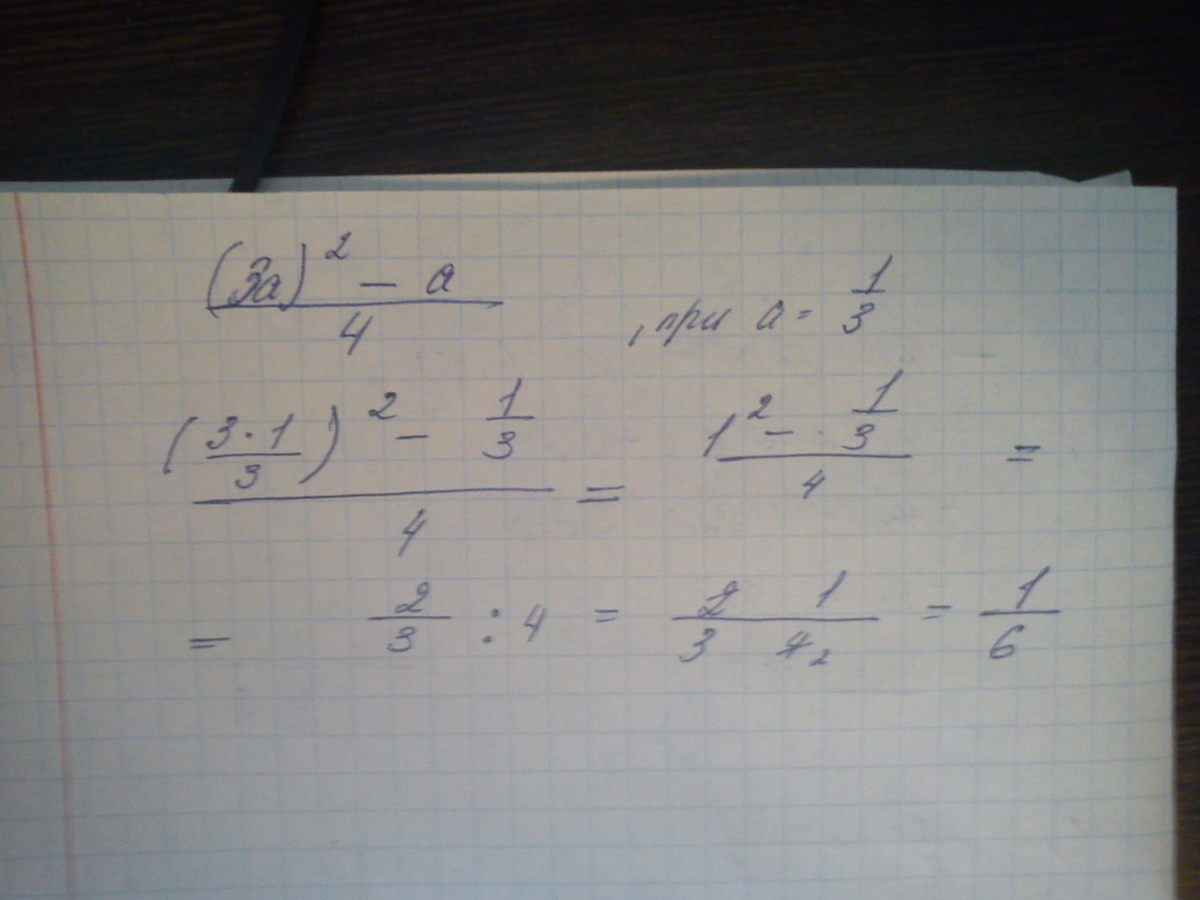 (3a)² - a / 4 , при a = 1/3
((3·1)/3)² - 1/3 / 4 = 1² - 1/3 / 4 =
= 2/3 : 4 = 2 1 / 3 4₂ = 1/6